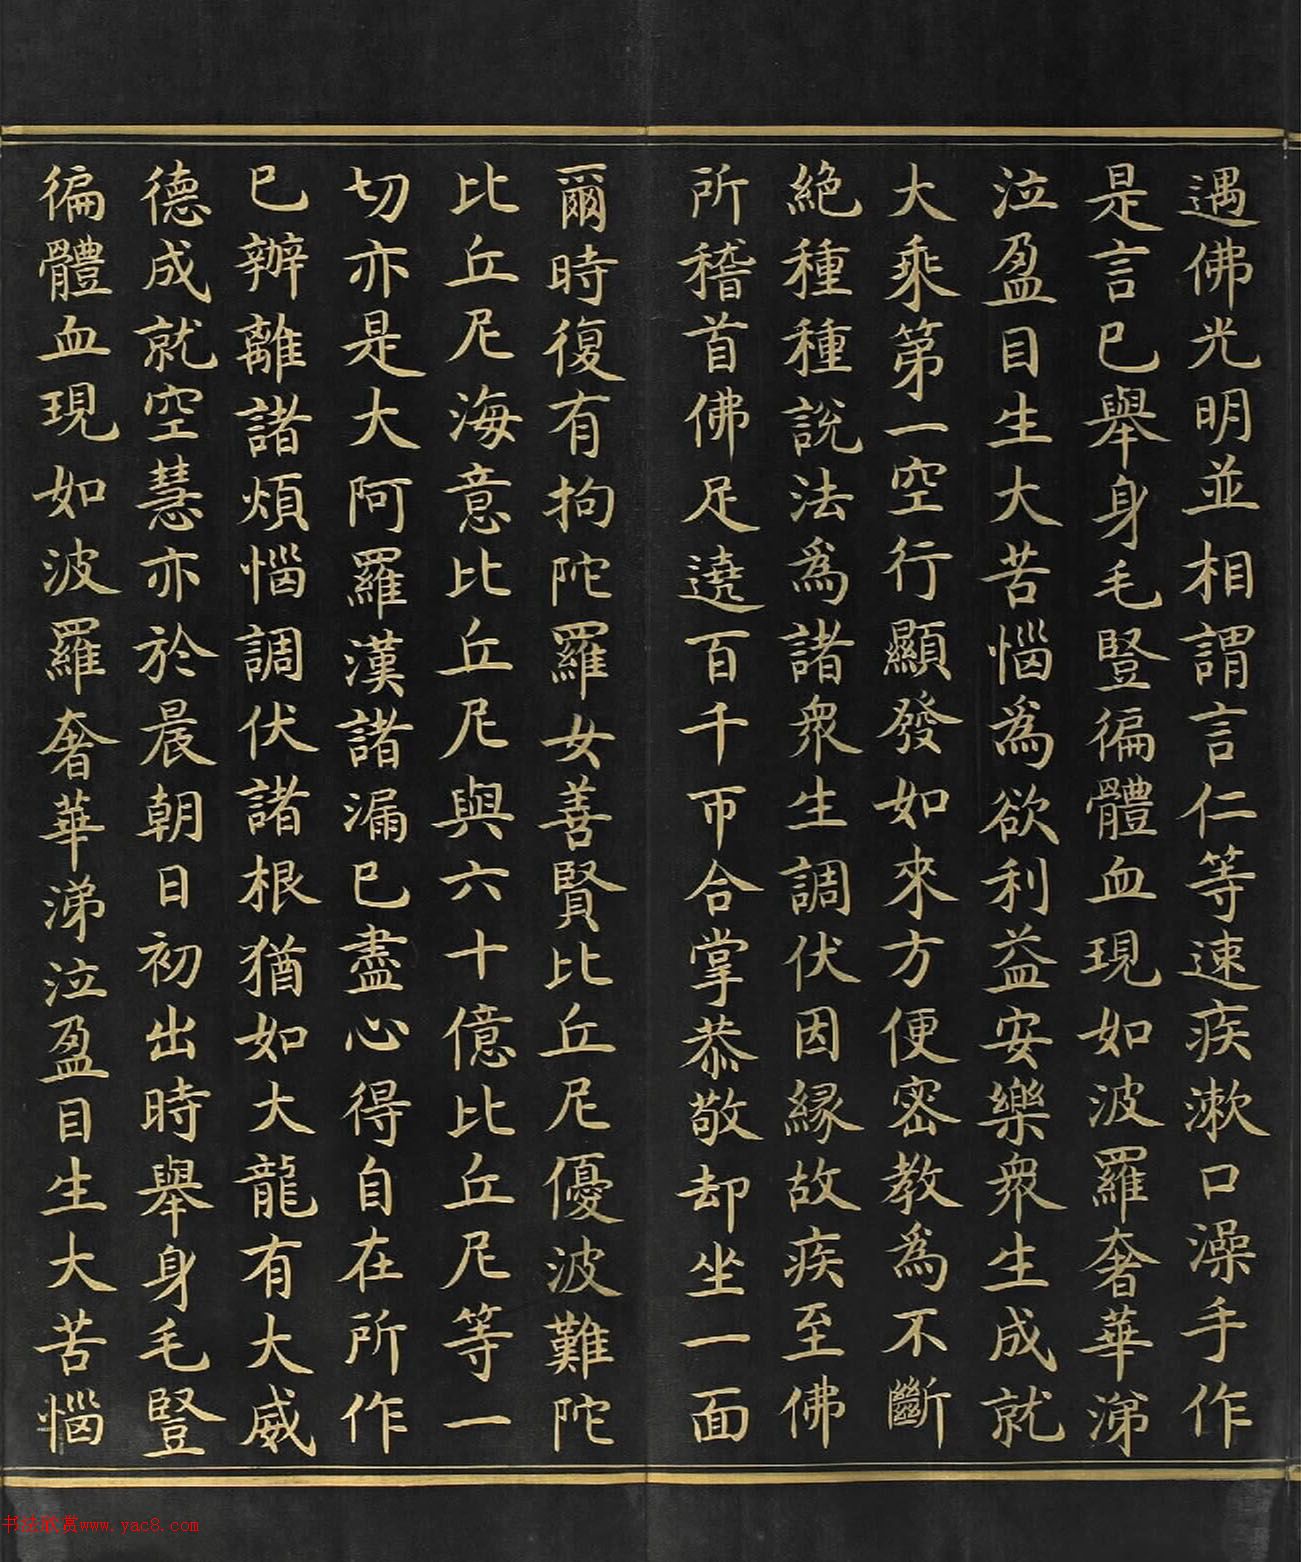 遇佛光明並相謂言仁等速疾漱口澡手作
是言已舉身毛豎徧體血現如波羅奢華涕
泣盈目生大苦惱為欲利益安樂衆生成就
大乘第一空行顯發如來方便密教為不斷
絕種種說法為諸衆生調伏因緣故疾至佛
所稽首佛足遶百千帀合掌恭敬却坐一面
爾時復有拘陀羅女善賢比丘尼優波難陀
比丘尼海意比丘尼與六十億比丘尼等一
切亦是大阿羅漢諸漏已盡心得自在所作
已辦離諸煩惱調伏諸根猶如大龍有大威
德成就空慧亦於晨朝日初出時舉身毛豎
徧體血現如波羅奢華涕泣盈目生大苦惱
书法欣赏www.yac8.com